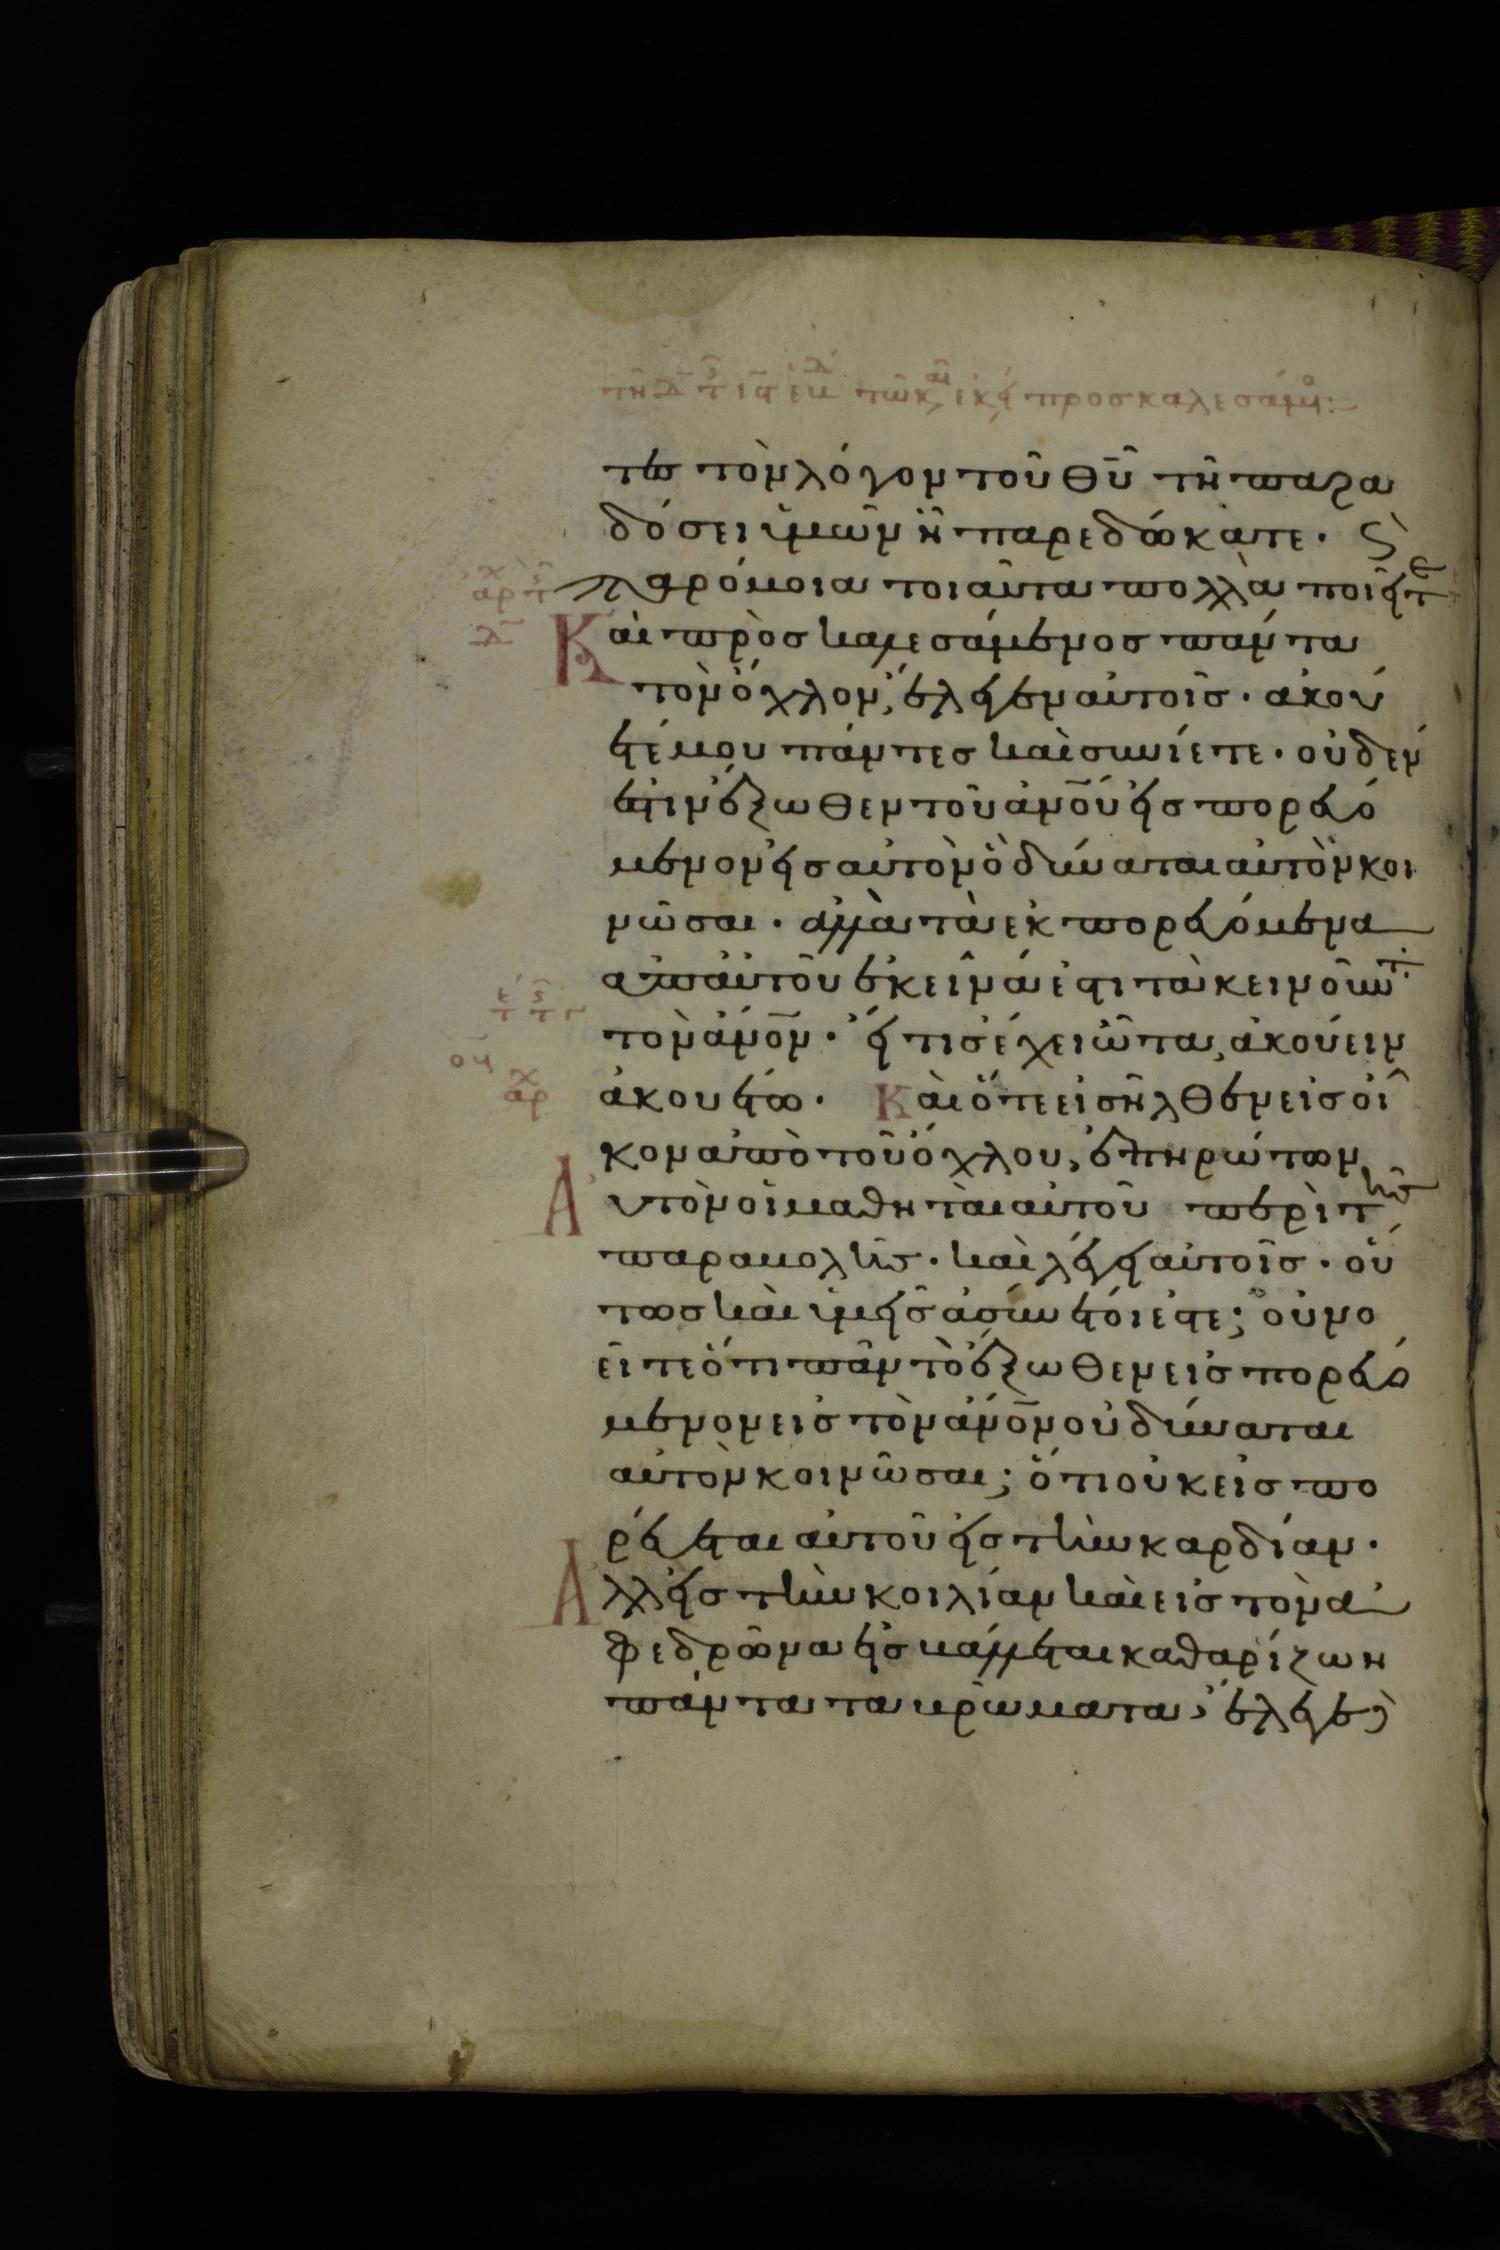 τῆ δ τῆς ις ἑβδ τῶ κ ἐκεί προσκαλεσάμ:
τω τὸν λόγον τοῦ θῦ τῆ παρα
δόσει ὑμῶν ἧ παρεδώκατε · ϗ
παρόμοια τοιαῦτα πολλὰ ποιεῖτε
Καὶ προσκαλεσάμενος πάντα
τὸν ὄχλον, ἔλεγεν αὐτοῖς · ἀκού
ετέ μου πάντες καὶ συνίετε · οὐδέν
ἐστιν ἔξωθεν τοῦ ἀνοῦ εἰσπορευό
μενον εἰς αὐτὸν ὃ δύναται αὐτὸν κοι
νῶσαι · ἀλλὰ τὰ ἐκπορευόμενα
ἀπ αὐτοῦ ἐκεῖνά ἐστι τὰ κοινοῦντ
τὸν ἄνον · εἴ τις ἔχει ὦτα ἀκούειν
ἀκουέτω · Καὶ ὅτε εἰσῆλθεν εἰς οἶ
κον ἀπὸ τοῦ ὄχλου, ἐπηρώτων
Αὐτὸν οἱ μαθηταὶ αὐτοῦ περὶ τῆς
παραβολῆς · καὶ λέγει αὐτοῖς · οὕ
τως καὶ ὑμεῖς ἀσύνετοί ἐστε; οὐ νο
εῖτε ὅτι πᾶν τὸ ἔξωθεν εἰσπορευό
μενον εἰς τὸν ἄνον οὐ δύναται
αὐτὸν κοινῶσαι; ὅτι οὐκ εἰσπο
ρεύεται αὐτοῦ εἰς τὴν καρδίαν ·
Ἀλλ εἰς τὴν κοιλίαν καὶ εἰς τὸν ἀ
φεδρῶνα ἐκβάλλεται καθαρίζων
πάντα τα βρώματα, ἔλεγεν
χ
ἀρ τ
λ
κ
τ
ου
χ
ἀρ